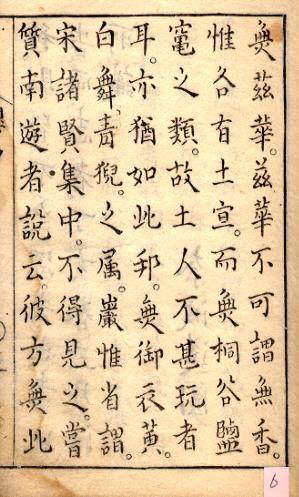 無茲華。茲華不可謂無香。
惟各有土宜。而無桐谷鹽
竈之類。故土人不甚玩者
耳。亦猶如此邦。無御衣黄。
白舞、青猊。之属。巖惟省謂。
宋諸賢集中。不得見之。嘗
質南遊者說云。彼方無此
6